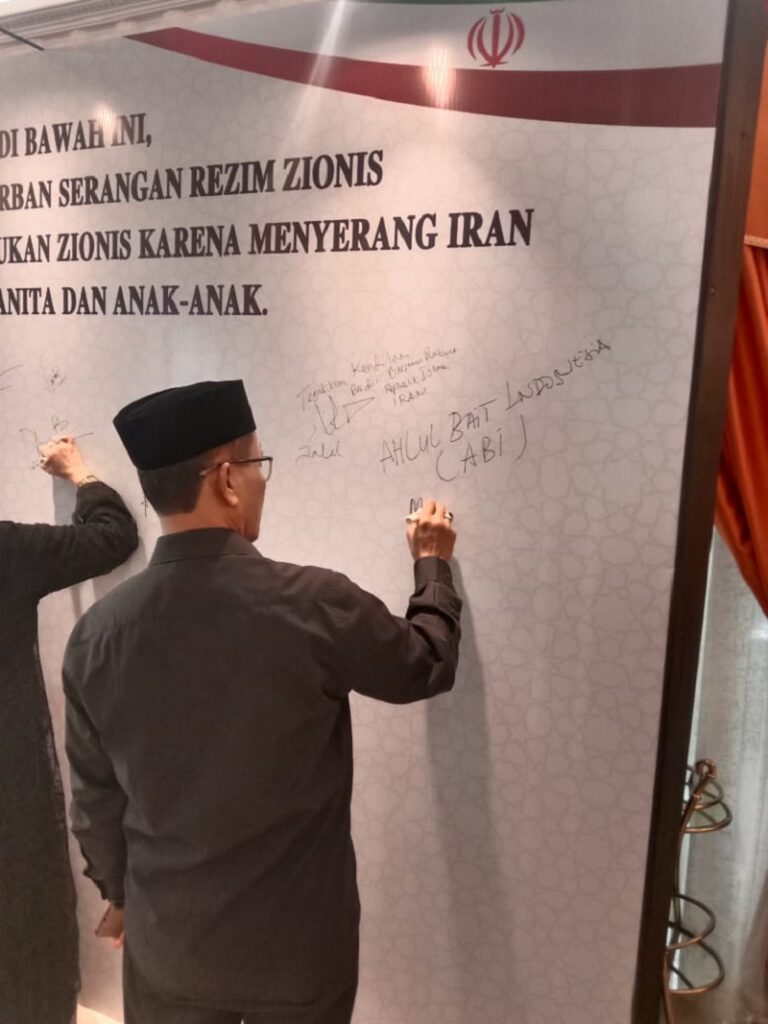 DI BAWAH INI,
RBAN SERANGAN REZIM ZIONIS
UKAN ZIONIS KARENA MENYERANG IRAN
ANITA DAN ANAK-ANAK.
Tegakkan Keadilan
Republik Islam
IRAN
AHLUL BAIT INDONESIA
(ABI)
M